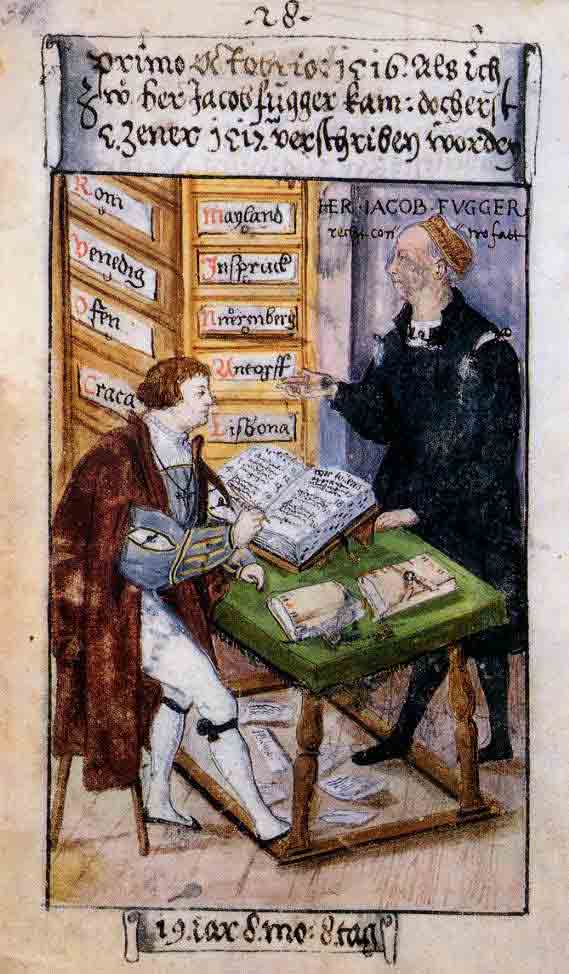 ·28·
primo Octobrio: 1516. Als ich
Zů her Jacob fugger kam: doch erst
5. Zener 1517 verschriben worden
Rom
Venedig
Ofen
Craca
Mayland
Inspruck
Nuorenberg
Antorff
Lisbona
HER · IACOB · FVGGER
recht con
19. iar 8. mo: 8. tag